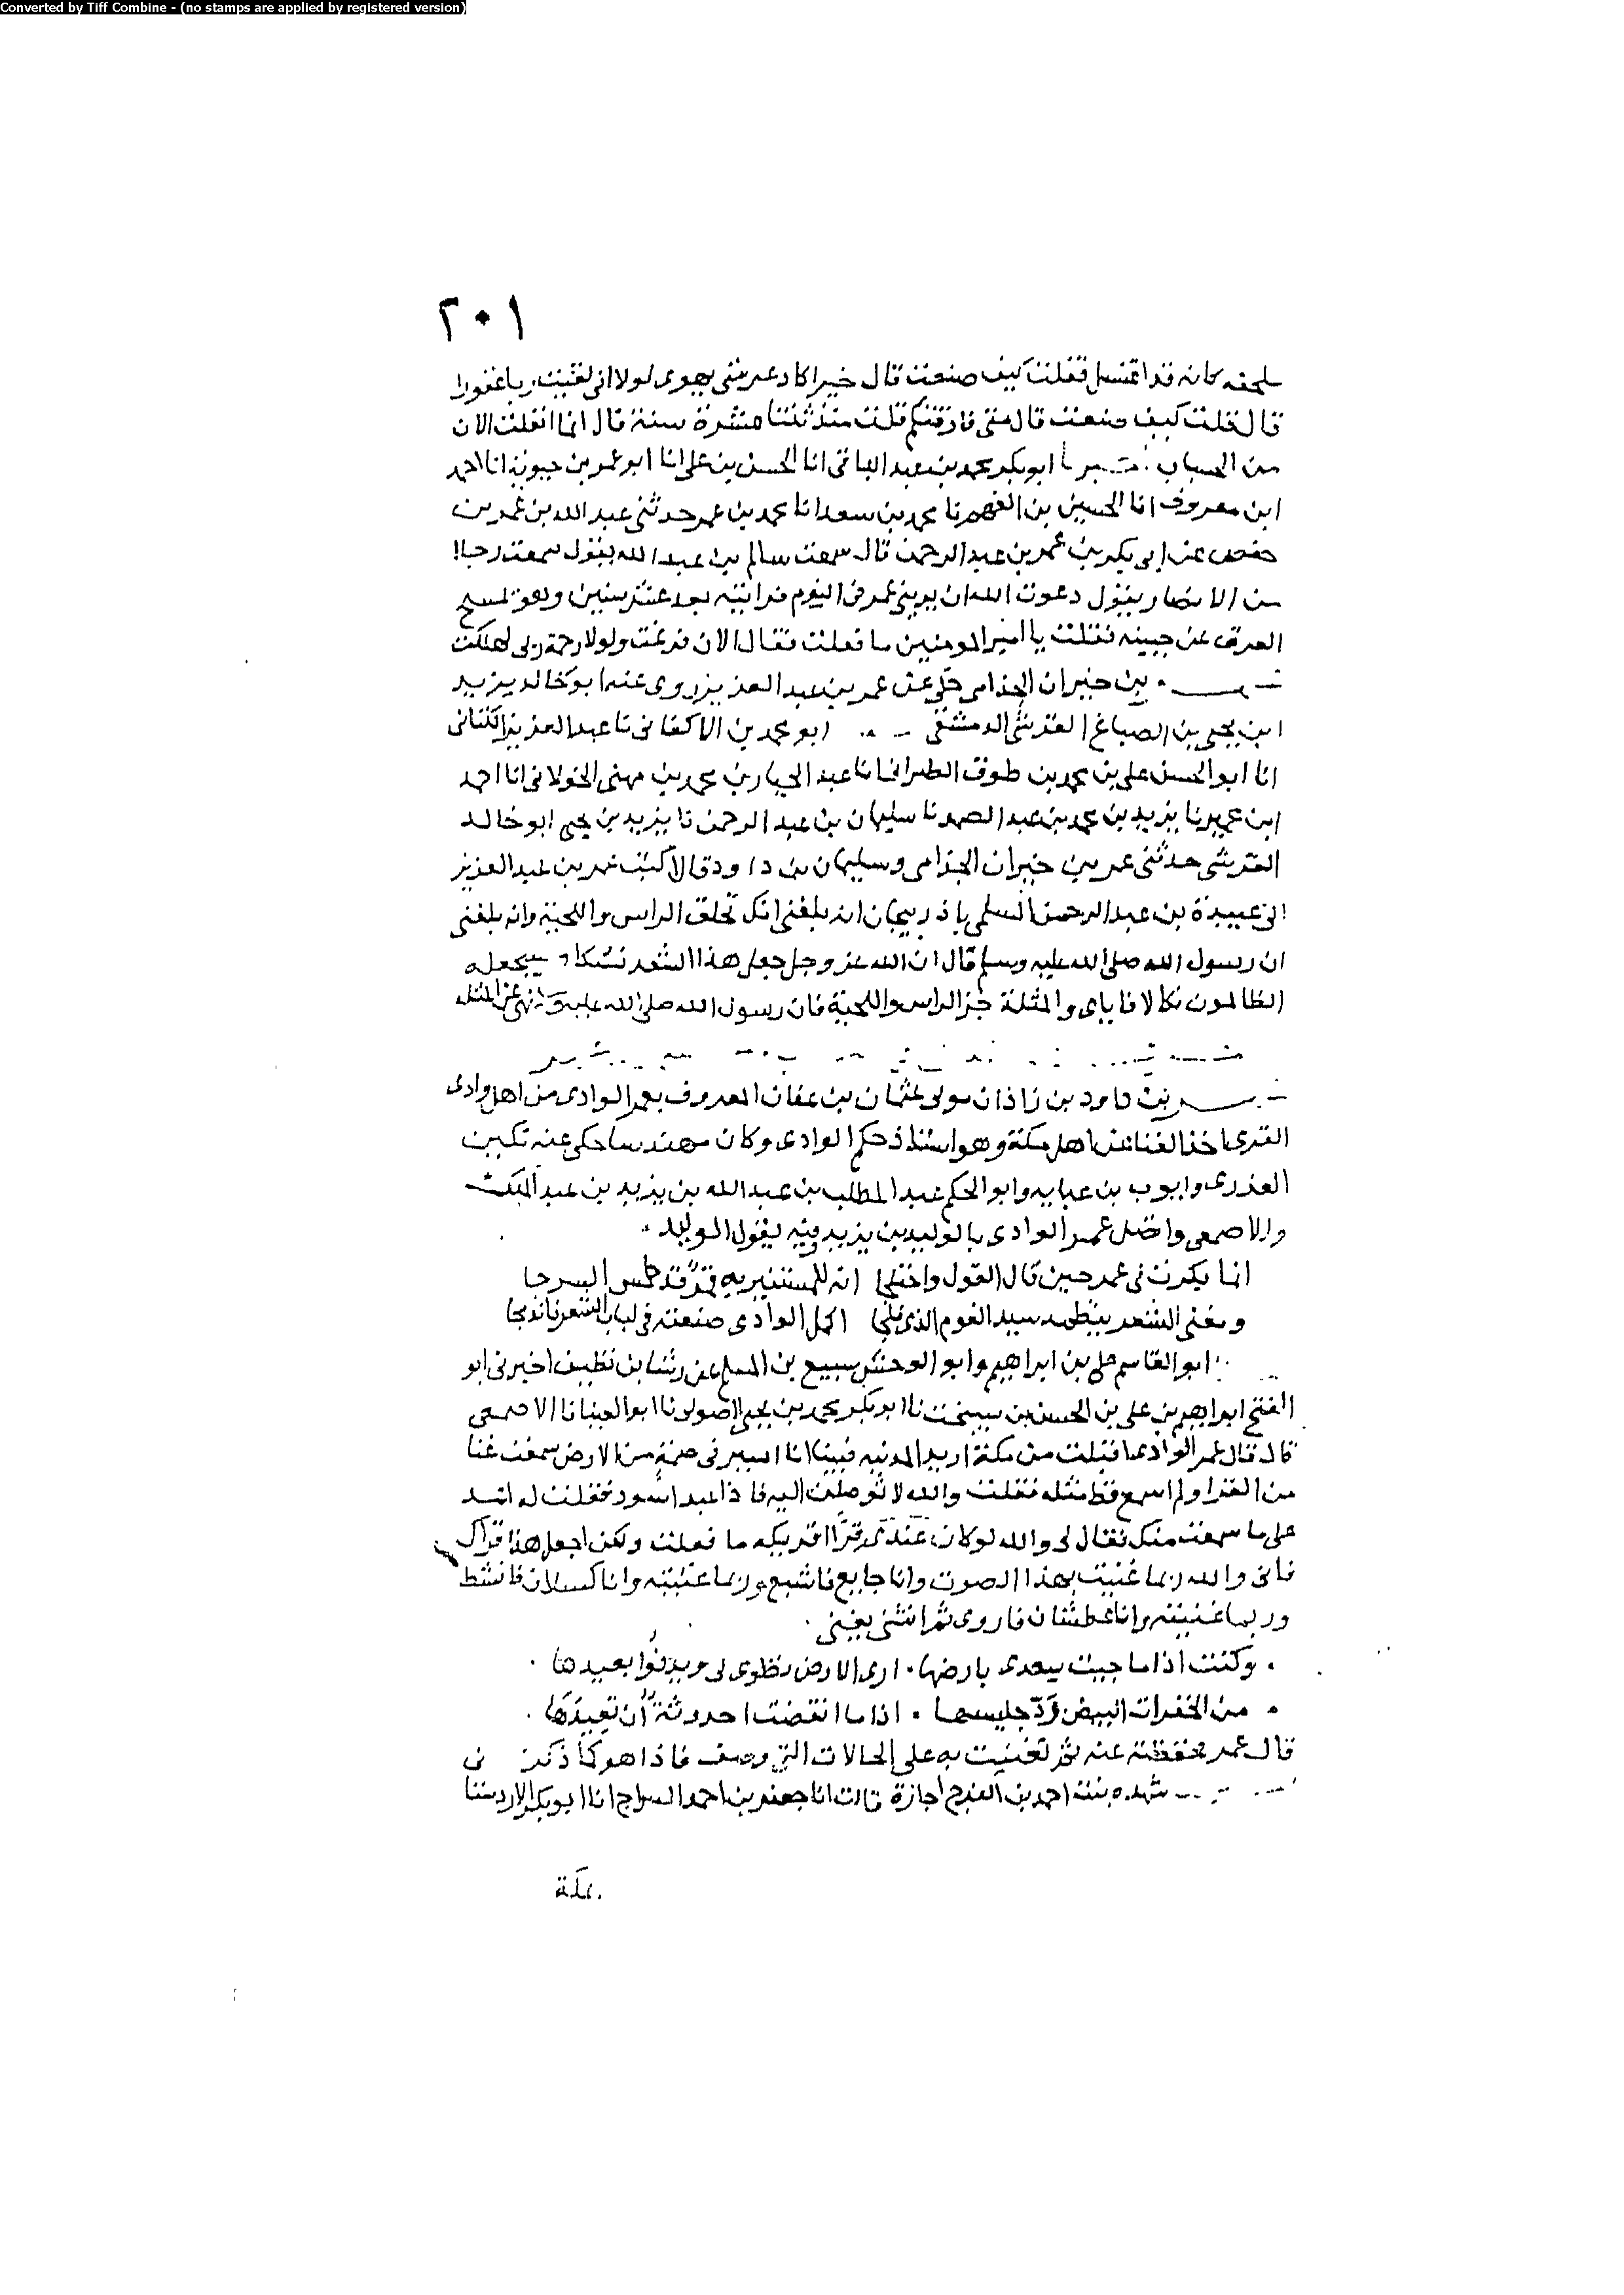 Converted by Tiff Combine - (no stamps are applied by registered version)
٢٠١
ملحفه كانه قد اغتسل فقلت كيف صنعت قال خيرا كاد عرشى يهوى لولا انى لقيت ربا غفورا
قال فقلت كيف صنعت قال متى فارقتكم قلت منذ ثنتا عشرة سنة قال انما انفلت الان
من الحساب ابو بكر محمد بن عبد الباقى انا الحسن بن على انا ابو عمر بن حيويه انا احمد
ابن معروف انا الحسين بن الفهم نا محمد بن سعد انا محمد بن عمر حدثنى عبد الله بن عمر بن
حفص عن ابى بكر بن عمر بن عبد الرحمن قال سمعت سالم بن عبد الله يقول سمعت رجلا
من الانصار يقول دعوت الله ان يرينى عمر فى النوم فرايته بعد عشر سنين وهو يمسح
العرق عن جبينه فقلت يا امير المومنين ما فعلت فقال الان فرغت ولولا رحمة ربى لهلكت
بن خيران الجذامى حكى عن عمر بن عبد العزيز روى عنه ابو خالد يزيد
ابن يحيى بن الصباغ القرشى الدمشقى ابو محمد بن الاكفانى نا عبد العزيز الكتانى
انا ابو الحسن على بن محمد بن طوق الطبرانى انا عبد الجبار بن محمد بن مهنى الخولانى انا احمد
ابن عمير نا يزيد بن محمد بن عبد الصمد نا سليمان بن عبد الرحمن نا يزيد بن يحيى ابو خالد
القرشى حدثنى عمر بن خيران الجذامى وسليمان بن داود قالا كتب عمر بن عبد العزيز
الى عبيدة بن عبد الرحمن السلمى باذربيجان انه بلغنى انك تحلق الراس واللحية وانه بلغنى
ان رسول الله صلى الله عليه وسلم قال ان الله عز وجل جعل هذا الشعر نسكا وسيجعله
الظالمون نكالا فاياى والمثلة جز الراس واللحية فان رسول الله صلى الله عليه نهى عن المثله
بن داود بن زاذان مولى عثمان بن عفان المعروف بعمر الوادى من اهل وادى
القرى اخذ الغنا عن اهل مكة وهو استاذ حكم الوادى وكان مهندسا حكى عنه
العذرى وايوب بن عبايه وابو الحكم عبد المطلب بن عبد الله بن يزيد بن عبد الملك
والاصمعى واتصل عمر الوادى بالوليد بن يزيد وفيه يقول الوليد
انما يكرت فى عمر حين قال القول واختلجا انه للمستنير به قمر قد طمس السرجا
ومغنى الشعر ينظمه سيد القوم الذى فلجا اكمل الوادى صنعته فى لباب الشعر فاندمجا
ابو القاسم على بن ابراهيم وابو الوحش سبيع بن المسلم عن رشا بن نظيف اخبرنى ابو
الفتح ابراهيم بن على بن الحسن بن سيبخت نا ابو بكر محمد بن يحيى الصولى نا ابو العينا نا الاصمعى
قال قال عمر الوادى اقبلت من مكة اريد المدينه فبينا انا اسير فى صمد من الارض سمعت غنا
من القرا ولم اسمع قط مثله فقلت والله لاتوصلن اليه فاذا عبد اسود فقلت له اعد
على ما سمعت منك فقال لى والله لو كان عندى قرا اقريكه ما فعلت ولكن اجعل هذا قراك
فانى والله ربما غنيت بهذا الصوت وانا جايع فاشبع وربما غنيته وانا كسلان فانشط
وربما غنيته وانا عطشان فاروى ثم انثنى يغنى
وكنت اذا ما جيت سعدى بارضها ارى الارض تطوى لى ويدنوا بعيدها
من الخفرات البيض ود جليسها اذا ما انقضت احدوثة أن تعيدها
قال عمر فحفظته عنه ثم تغنيت به على الحالات التى وصف فاذا هو كما ذكر
شهده بنت احمد بن الفرج اجازة قالت انا جعفر بن احمد السراج انا ابو بكر الاردستا
بمكة